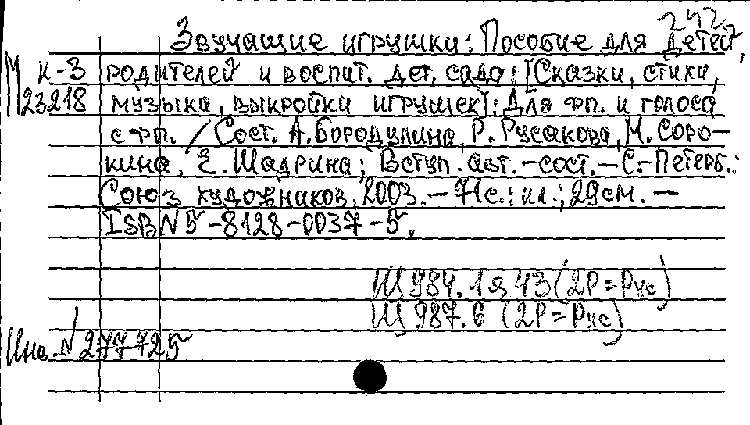 242
Звучащие игрушки: Пособие для детей,
М К-3 родителей и воспит. дет. сада: [Сказки, стихи,
23218 музыка, выкройки игрушек]: Для фп. и голоса
с фп. / Сост. А. Бородулина, Р. Русакова, М. Соро-
кина, Е. Шадрина; Вступ. авт.-сост. — С.-Петерб.:
Союз художников, 2003. — 71с.: ил.; 29см. —
ISBN 5-8128-0037-5.
Щ 984.1я43 (2Р=Рус)
Щ 987.6 (2Р=Рус)
Инв. N 277725